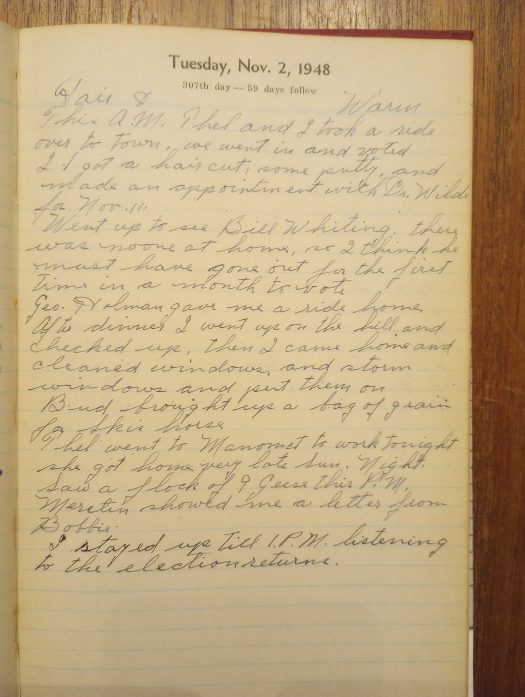 Tuesday, Nov. 2, 1948
307th day — 59 days follow
Fair & Warm
This A.M. Thel and I took a ride
over to town. we went in and voted
I got a hair cut, some putty, and
made an appointment with Dr. Wilde
for Nov. 11.
Went up to see Bill Whiting. there
was noone at home, so I think he
must have gone out for the first
time in a month to vote
Geo. Holman gave me a ride home.
After dinner I went up on the hill and
checked up, then I came home and
cleaned windows, and storm
windows and put them on
Bud brought up a bag of grain
for horse
Thel went to Manomet to work tonight
she got home very late Sun. Night.
Saw a flock of 9 Geese this P.M.
showed me a letter from
Bobbie.
I stayed up till 1.P.M. listening
to the election returns.